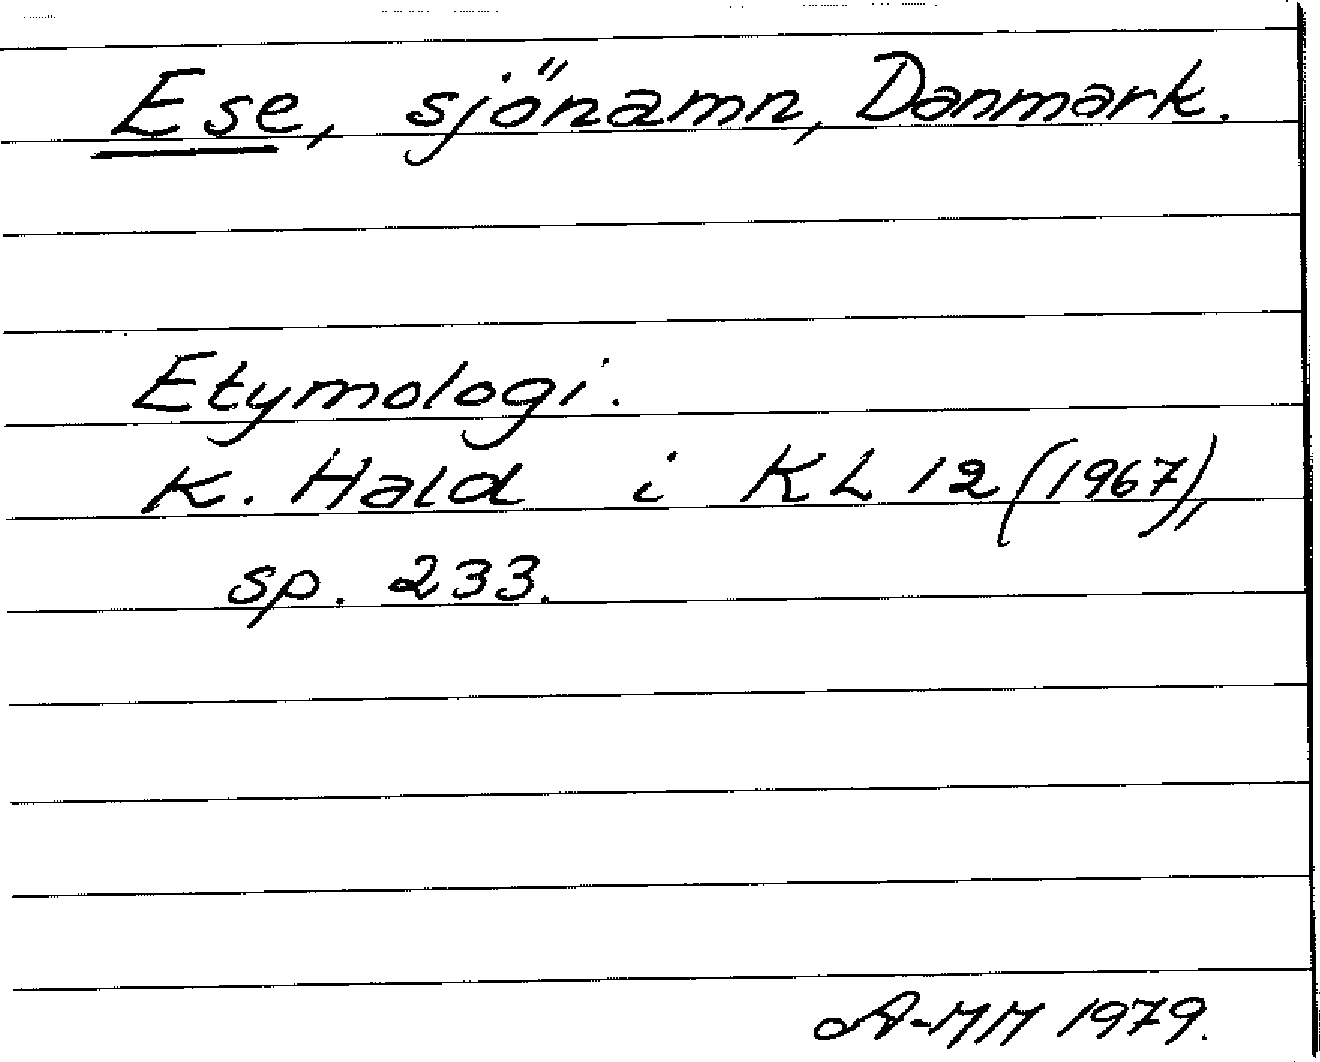 Ese, sjönamn, Danmark.
Etymologi.
K. Hald i KL 12 (1967),
sp. 233.
A-MM 1979.